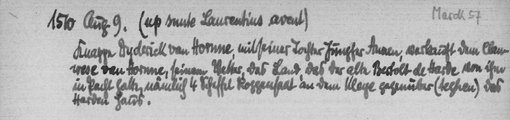 1510 Aug 9. (up sunte Laurentius avent) Marck 57
Knappe Dyderick van Hornne, will seiner Tochter Jungfer Annen, verkauft dem Clawese
van Hornne, seinem Vetter, das Land, das der alte Bertolt de Harde von ihm
in Pacht hatte, nämlich 4 Scheffel Roggensaat an dem Wege gegenüber (teghen) des
Harden Haus.